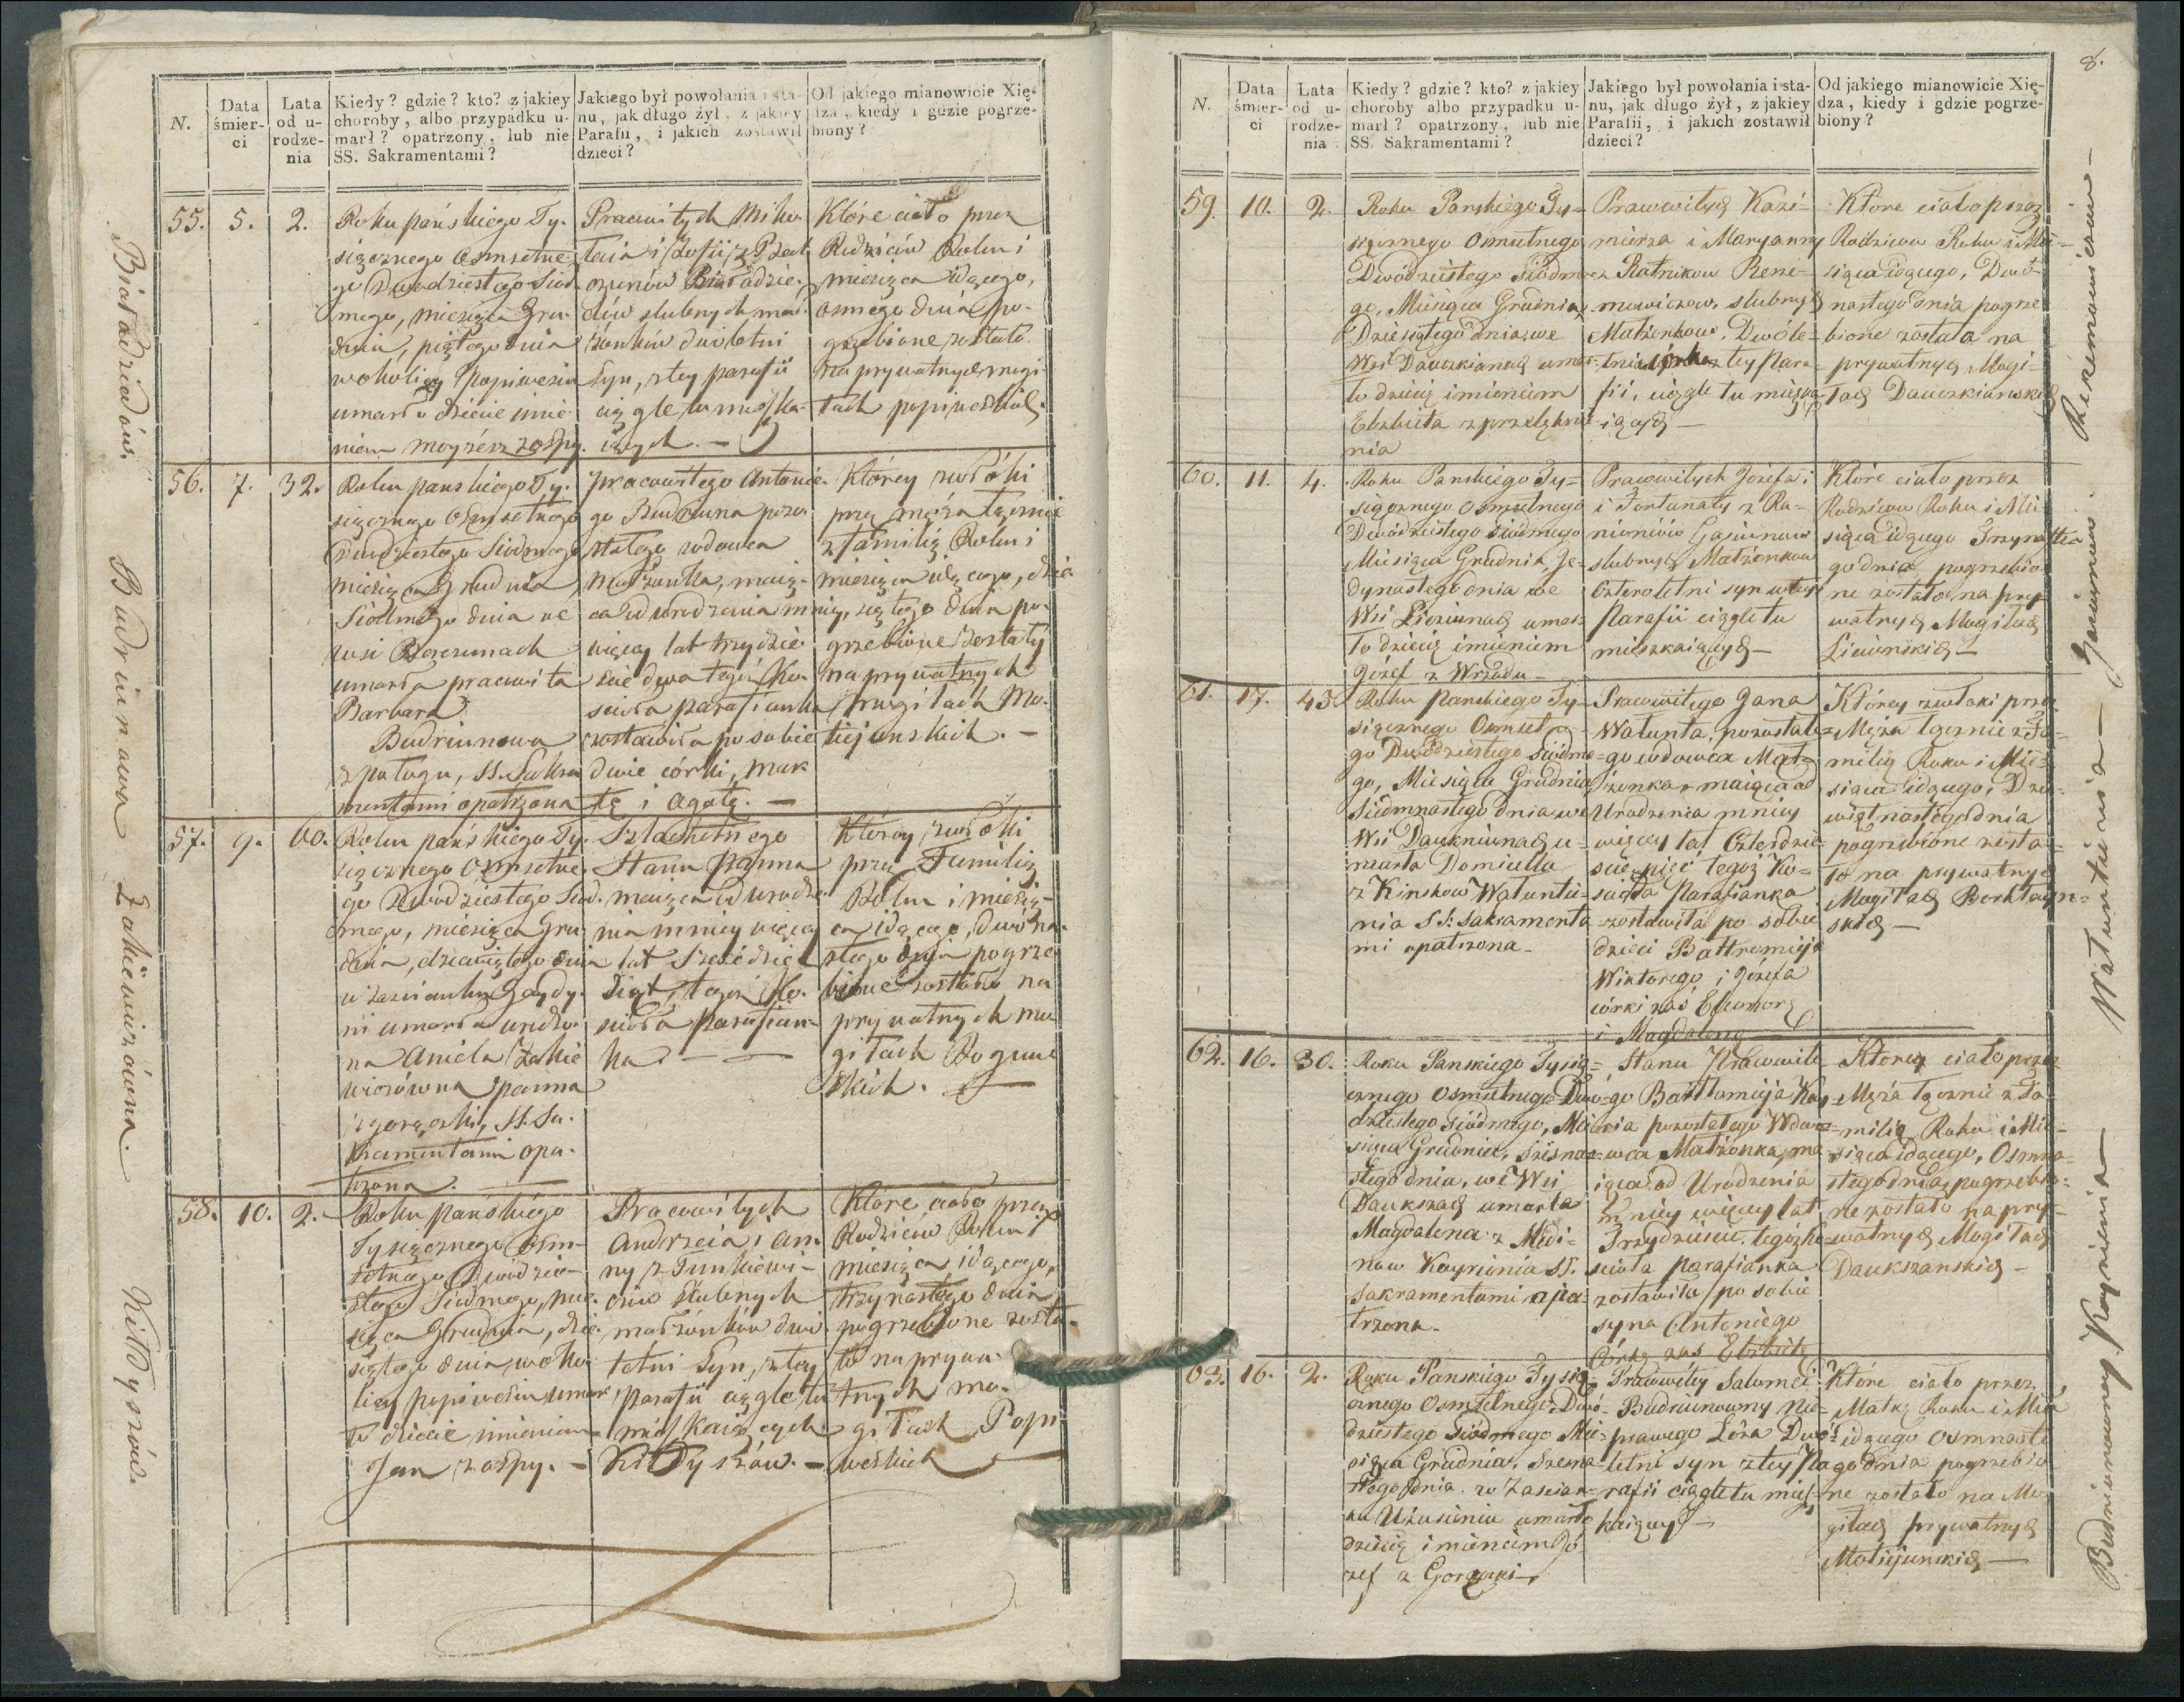 N.
Data
śmier-
ci
Lata
od u-
rodze-
nia
Kiedy? gdzie? kto? z jakiey
choroby, albo przypadku u-
marł? opatrzony, lub nie
SS. Sakramentami?
Jakiego był powołania i sta-
nu, jak długo żył, z jakiey
Parafii, i jakich zostawił
dzieci?
Od jakiego mianowicie Xię-
dza, kiedy i gdzie pogrze-
biony?
55.
5.
2.
Roku pańskiego Ty-
siącznego Osmsetne-
go Dwudziestego Siód-
mego, miesiąca Gru-
dnia, piątego dnia
w okolicy Popiwesiu
umarło dziecie imie-
niem Moyżesz z ospy.
Pracowitych Miko-
łaia i Zofii z
Białadzie-
dów slubnych mał-
żonków dwóletni
syn, z tey parafii
ciągle tu mieszka-
iących. —
Które ciało przez
Rodziców Roku i
miesiąca idącego,
osmego dnia po-
grzebione zostało
na prywatnych mogi-
łach popiweskich.
56.
7.
32.
Roku pańskiego Ty-
siącznego Osmsetnego
dwudziestego Siódmego
miesiąca Grudnia
Siódmego dnia we
wsi
umarła pracowita
Barbara
Budriunowa
z połogu, SS. Sakra-
mentami opatrzona
pracowitego Antonie-
go Budriuna pozo-
stałego wdowca
małżonka, maią-
ca od urodzenia mniey
więcey lat trzydzie-
scie dwa tegoż Ko-
scioła parafianka
zostawiła po sobie
dwie córki, Mar-
tę i Agatę. —
Którey zwłoki
prze męża łącznie
z familią Roku i
miesiąca idącego, dzie-
siątego dnia po-
grzebione zostały
na prywatnych
mogiłach Mo-
tiejunskich. —
57.
9.
60.
Roku pańskiego Ty-
siącznego Osmsetne-
go Dwudziestego Siód-
mego, miesiąca Gru-
dnia, dziewiątego dnia
w zascianku Gaydy-
ni umarła urodzo-
na Aniela Zakie-
wiczówna panna
z gorączki, SS. Sa-
kramentami opa-
trzona. —
Szlachetnego
Stanu Panna
maiąca od urodze-
nia mniey więcey
lat sześćdzie-
siąt, tegoż Ko-
scioła parafian-
ka. — —
Którey zwłoki
prze Familią
Roku i miesią-
ca idącego, dwóna-
stego dnia pogrze-
bione zostało na
prywatnych mo-
giłach Rogun-
skich. —
58.
10.
2.
Roku pańskiego
Tysiącznego Osm-
setnego Dwudzie-
stego Siódmego, mie-
siąca Grudnia, dzie-
siątego dnia, w oko-
licy popiwesiu umar-
ło dziecie imieniem
Jan z ospy. —
Pracowitych
Andrzeia i An-
ny z Junkiewi-
czów slubnych
małżonków dwu-
letni Syn, z tey
parafii ciągle tu
mieszkaiących
Kiłdyszów. —
Które ciało przez
Rodziców Roku i
miesiąca idącego,
trzynastego dnia
pogrzebione zosta-
ło na prywa-
tnych mo-
giłach Popi-
weskich —
Białadziedów.
Budriunowa
Zakiewiczówna.
Kiłdyszów.
8.
N.
Data
śmier-
ci
Lata
od u-
rodze-
nia
Kiedy? gdzie? kto? z jakiey
choroby albo przypadku u-
marł? opatrzony, lub nie
SS. Sakramentami?
Jakiego był powołania i sta-
nu, jak długo żył, z jakiey
Parafii, i jakich zostawił
dzieci?
Od jakiego mianowicie Xię-
dza, kiedy i gdzie pogrze-
biony?
59.
10.
2.
Roku Panskiego Ty-
siącznego Osmsetnego
Dwódziestego siódme-
go, Miesiąca Grudnia,
Dziesiątego dnia, we
Wsi Dauczkianach umar-
ło dziecię imieniem
Elzbieta z przelęknie-
nia
Pracowitych Kazi-
mierza i Maryanny
z Ratnikow Reni-
mowiczow, slubnych
Małżonkow. Dwóle-
tnia córka z tey Para-
fii, ciągle tu mieszka-
iących —
Ktore ciało przez
Rodzicow Roku i Mie-
siąca idącego, Dwó-
nastego dnia pogrze
bione została na
prywatnych Mogi-
łach Dauczkianskich
60.
11.
4.
Roku Panskiego Ty-
siącznego Osmsetnego
Dwódziestego siódmego
Miesiąca Grudnia, Je-
dynastego dnia we
Wsi Liciunach umar-
ło dziecię imieniem
Józef z Wrzodu —
Pracowitych Józefa i
i Fortunaty z Ra-
nioniów Gasiunow
slubnych Małżonkow
Czteroletni syn z tey
Parafii ciągle tu
mieszkaiących —
Ktore ciało przez
Rodzicow Roku i Mie-
siąca idącego Trzynaste-
go dnia pogrzebio-
ne zostało na pry-
watnych Mogiłach
Liciunskich —
61.
17.
45
Roku Panskiego Ty-
siącznego Osmsetne-
go Dwódziestego siódme-
go, Miesiąca Grudnia
Siedmnastego dnia we
Wsi Daukniunach u-
marła Domicella
z Kinskow Watuntu-
nia SS: Sakramenta-
mi opatrzona —
Pracowitego Jana
Watunta, pozostałe-
go wdowca Mał-
żonka, maiąca od
Urodzenia mniey
więcey lat Czterdzie-
scie pięć tegoż Ko-
scioła Parafianka
zostawiła po sobie
dzieci Bartłomieja
Wiktorego i Józefa
córki zaś Eleonorę
i Magdalenę
Którey zwłoki przez
Męża łącznie z Fa-
milią Roku i Mie-
siąca idącego, Dzie-
więtnastego dnia
pogrzebione zosta-
ło na prywatnych
Mogiłach
skich —
62.
16.
30.
Roku Panskiego Tysią-
cznego Osmsetnego Dwó-
dziestego siódmego, Mie-
siąca Grudnia, szesna-
stego dnia, we Wsi
Daukszach umarła
Magdalena z Midi-
now Kayrienia SS.
Sakramentami opa-
trzona —
Stanu Pracowite-
go Bartłomieja Kay-
ria pozostałego Wdow-
wca Małżonka, ma-
iąca od Urodzenia
mniey więcey lat
Trzydziescie. tegóż ko-
scioła Parafianka
zostawiła po sobie
syna Antoniego
Córkę zaś Elzbietę
Którey ciało przez
Męża łącznie z Fa-
milią Roku i Mie-
siąca idącego, Osmna-
stego dnia, pogrzebio-
ne zostało na pry-
watnych Mogiłach
Daukszanskich —
63.
16.
2.
Roku Panskiego Tysią-
cznego Osmsetnego Dwó-
dziestego Siódmego Mie-
siąca Grudnia, Szesna-
stego dnia w Zascian-
ku Użusieniu umarło
dziecię imieniem Jó-
zef z Gorączki —
Pracowitey Salomei
Budriunowny Nie-
prawego Łóża Dwó-
letni syn z tey Pa-
rafii ciągle tu miesz-
kaiącey —
Które ciało przez
Matkę Roku i Mie
idącego Osmnaste
go dnia pogrzebio-
ne zostało na Mo-
giłach prywatnych
Motiejunskich —
Renimowiczow —
Gasiunow.
Watuntunia —
Kayrienia —
Budriunowney